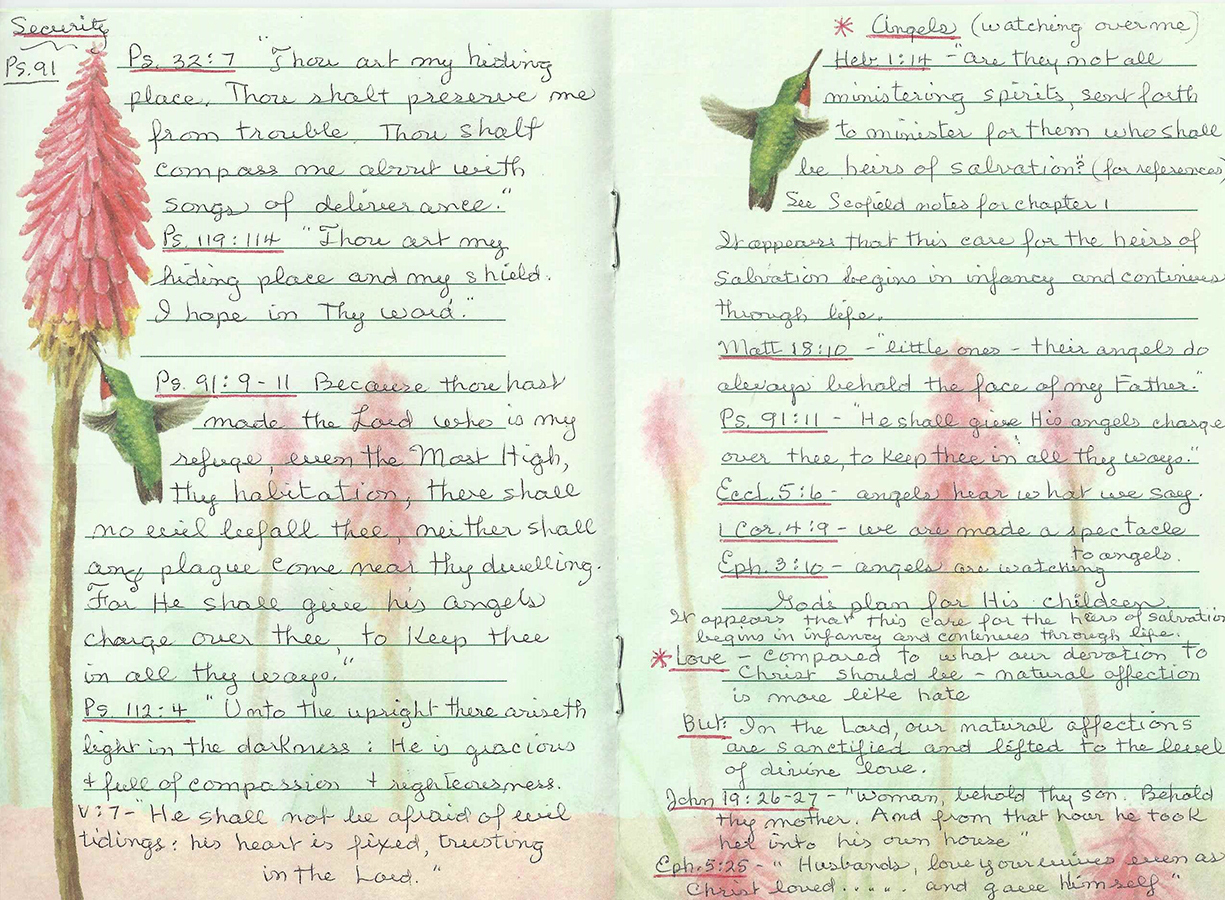 Security
Ps. 91
Ps. 32:7 "Thou art my hiding
place, Thou shalt preserve me
from trouble Thou shalt
compass me about with
songs of deliverance."
Ps. 119:114 "Thou art my
hiding place and my shield.
I hope in Thy word."
Ps. 91:9-11 Because thou hast
made the Lord who is my
refuge, even the Most High,
thy habitation; there shall
no evil beefall thee, neither shall
any plague come near thy dwelling.
For He shall give his angels
charge over thee, to Keep thee
in all thy ways."
Ps. 112:4 "Unto the upright there ariseth
light in the darkness: He is gracious
+ full of compassion + righteousness.
V:7- "He shall not be afraid of evil
tidings: his heart is fixed, trusting
in the Lord."
* Angels (watching over me)
Heb 1:14 - "are they not all
ministering spirits, sent forth
to minister for them who shall
be heirs of salvation?" (for references)
See Scofield notes for chapter 1
It appears that this care for the heirs of
salvation begins in infancy and continues
through life.
Matt 18:10 - "little ones - their angels do
always behold the face of my Father."
Ps. 91:11 - "He shall give His angels charge
over thee, to keep thee in all thy ways."
Eccl. 5:6 - angels hear what we say.
1 Cor. 4:9 - we are made a spectacle
to angels.
Eph. 3:10 - angels are watching
God's plan for His children.
It appears that this care for the heirs of salvation
begins in infancy and continues through life.
* Love - compared to what our devotion to
Christ should be - natural affection
is more like hate
But: In the Lord, our natural affections
are sanctified and lifted to the level
of divine love.
John 19:26-27 - "Woman, behold thy son. Behold
thy mother. And from that hour he took
her into his own house"
Eph. 5:25 - "Husbands, love your wives even as
Christ loved...... and gave himself"